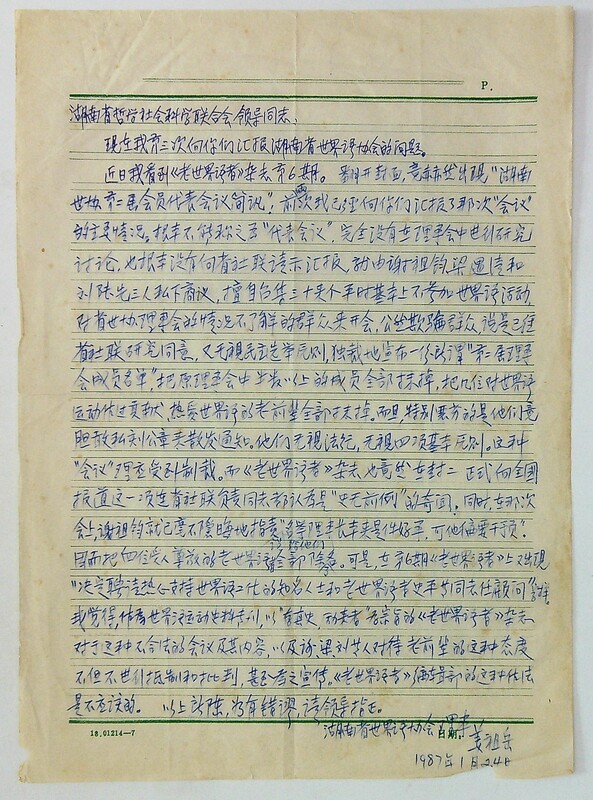 P.
湖南省哲学社会科学联合会领导同志:
现在我第三次向你们汇报湖南省世界语协会的问题。
近日我看到《老世界语者》杂志第6期。翻开封面,竟赫然出现"湖南
世协第二届会员代表会议简讯"。前两次我已经向你们汇报了那次"会议"
的主要情况。根本不能称之为"代表会议",完全没有在理事会中进行研究
讨论,也根本没有向省社联请示汇报,就由谢祖钧、梁遇清和
刘陆先三人私下商议,擅自召集三十来个平时基本上不参加世界语活动,
对省世协理事会的情况不了解的群众来开会,公然欺骗群众,说是已经
省社联研究同意,又无视民主选举原则,独裁地宣布一份所谓"第二届理事
会成员名单",把原理事会中半数以上的成员全部抹掉,把几位对世界语
运动作过贡献,热爱世界语的老前辈全部抹掉。而且,特别恶劣的是他们竟
胆敢私刻公章来散发通知。他们无视法纪,无视四项基本原则。这种
"会议"理应受到制裁。而《老世界语者》杂志也竟然在封二正式向全国
报道这一项连省社联负责同志都认为是"史无前例"的奇闻。同时,在那次
会上,谢祖钧就已毫不隐晦地指责
因而把四位受人尊敬的老世界语者全部除名。可是,在第6期《老世界语者》上又出现
"决定聘请热心支持世界语工作的知名人士和老世界语者史平等同志任顾问"
我觉得作为世界语运动史料专刊,以 为宗旨的《老世界语者》杂志
对于这种不合法的会议及其内容,以及谢梁刘等人对待老前辈的这种态度
不但不进行抵制和批判,甚至为之宣传。《老世界语者》编辑部的这种作法
是不应该的。 以上所陈,如有错谬,请领导指正。
湖南省世界语协会理事
姜祖岳
18.01214—7 日期:
1987年1月24日